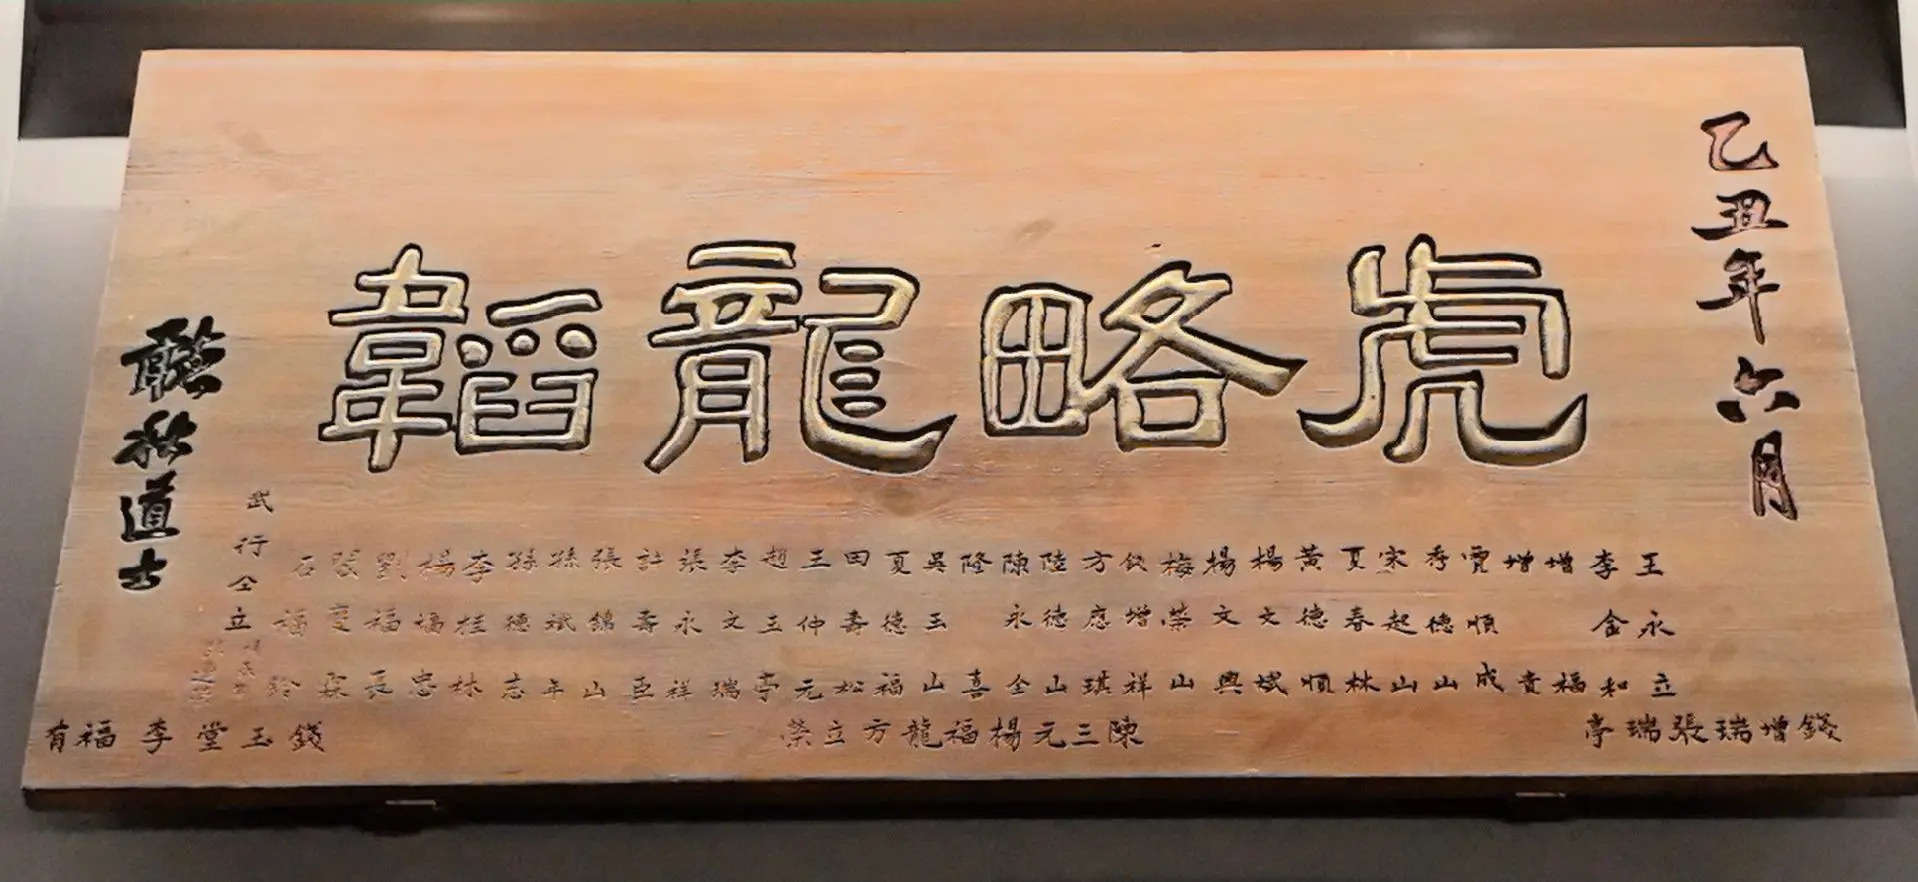 乙丑年六月
虎略龍韜
王永立
李金和
增福
增貴
賈順成
秀德山
宋起山
夏春林
黃德順
楊文斌
楊文興
梅榮山
錢增祥
方應琪
陸德山
陳永全
隆喜
吳玉山
夏德福
田壽松
王仲元
趙玉亭
李文瑞
張永祥
計壽臣
張錦山
孫斌年
孫德志
李桂林
楊福忠
劉福長
張霖
石福鈴
武行仝立
錢增瑞張瑞亭
陳三元楊福龍方立榮
錢玉堂李福有
聽秋道士